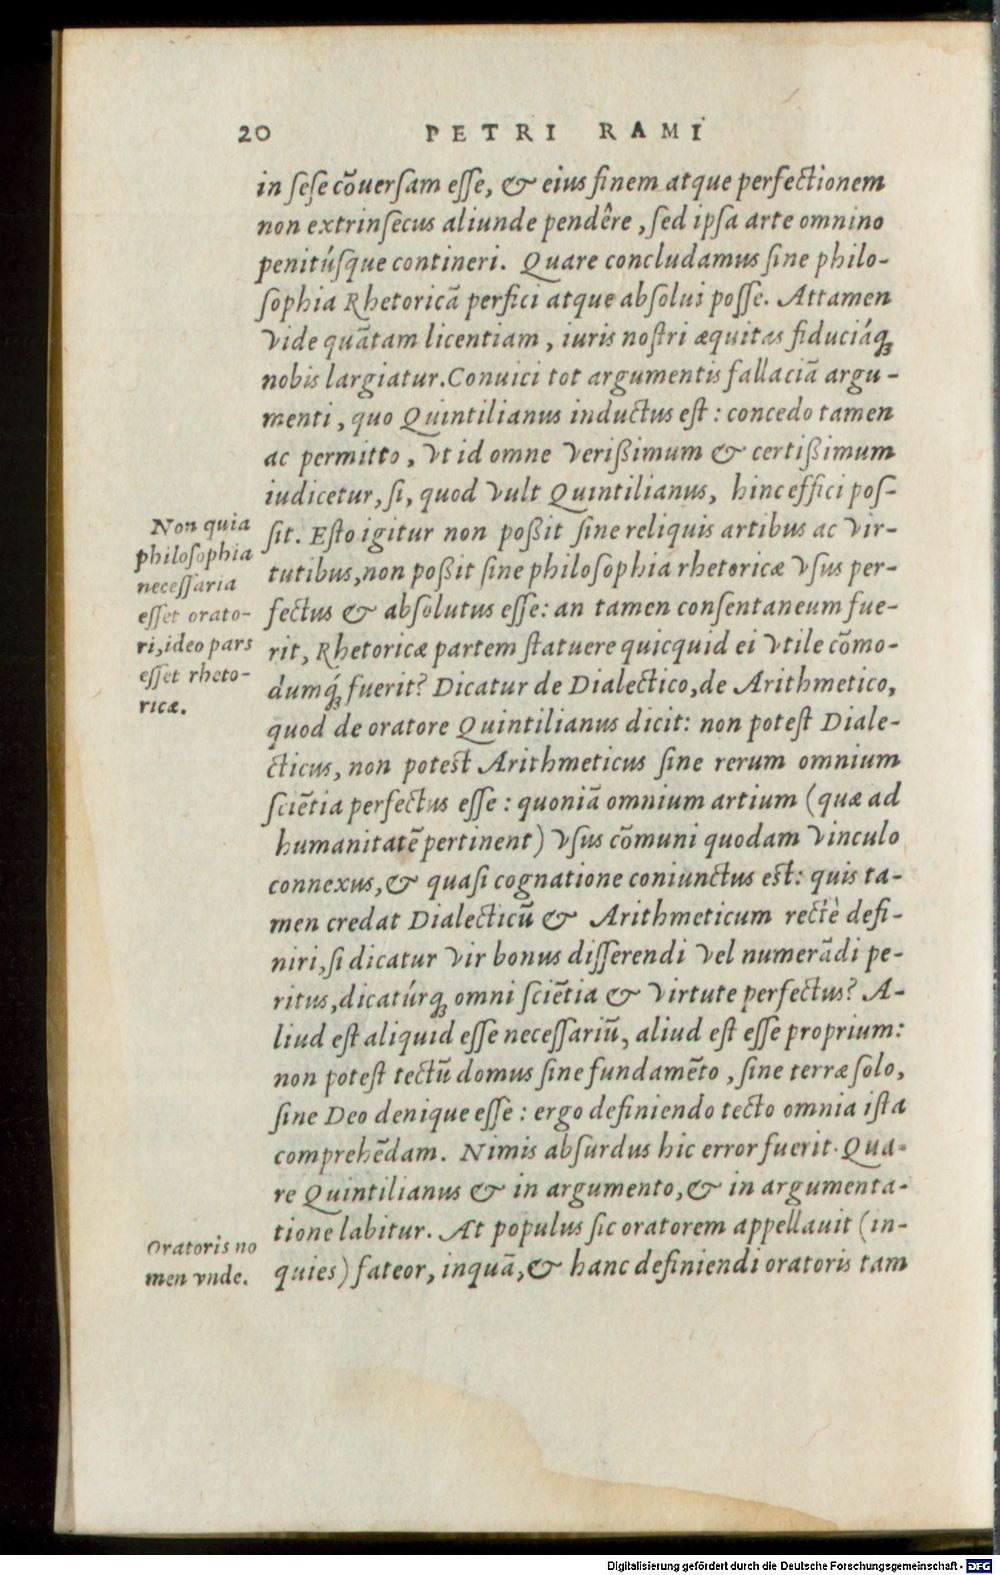 20 PETRI RAMI
in ſeſe cõuerſam eſſe, & eius finem atque perfectionem
non extrinſecus aliunde pendêre, ſed ipſa arte omnino
penitúſque contineri. Quare concludamus ſine philo-
ſophia Rhetoricã perfici atque abſolui poſſe. Attamen
vide quãtam licentiam, iuris noſtri æquitas fiduciáq;
nobis largiatur. Conuici tot argumentis fallaciã argu-
menti, quo Quintilianus inductus eſt: concedo tamen
ac permitto, vt id omne verißimum & certißimum
iudicetur, ſi, quod vult Quintilianus, hinc effici poſ-
ſit. Eſto igitur non poßit ſine reliquis artibus ac vir-
tutibus, non poßit ſine philoſophia rhetoricæ vſus per-
fectus & abſolutus eſſe: an tamen conſentaneum fue-
rit, Rhetoricæ partem ſtatuere quicquid ei vtile cõmo-
dumq́; fuerit? Dicatur de Dialectico, de Arithmetico,
quod de oratore Quintilianus dicit: non poteſt Diale-
cticus, non poteſt Arithmeticus ſine rerum omnium
ſciẽtia perfectus eſſe: quoniã omnium artium (quæ ad
humanitatẽ pertinent) vſus cõmuni quodam vinculo
connexus, & quaſi cognatione coniunctus eſt: quis ta-
men credat Dialecticũ & Arithmeticum rectè defi-
niri, ſi dicatur vir bonus diſſerendi vel numerãdi pe-
ritus, dicatúrq; omni ſciẽtia & virtute perfectus? A-
liud eſt aliquid eſſe neceſſariũ, aliud eſt eſſe proprium:
non poteſt tectũ domus ſine fundamẽto, ſine terræ ſolo,
ſine Deo denique eſſe: ergo definiendo tecto omnia iſta
comprehẽdam. Nimis abſurdus hic error fuerit. Qua-
re Quintilianus & in argumento, & in argumenta-
tione labitur. At populus ſic oratorem appellauit (in-
quies) fateor, inquã, & hanc definiendi oratoris tam
Non quia
philoſophia
neceſſaria
eſſet orato-
ri, ideo pars
eſſet rheto-
ricæ.
Oratoris no
men vnde.
Digitalisierung gefördert durch die Deutsche Forschungsgemeinschaft - DFG